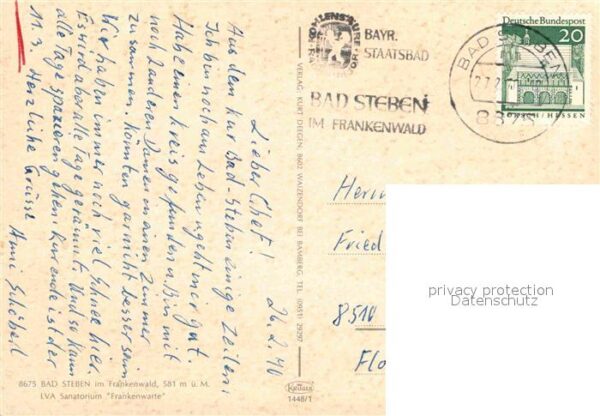 Lieber Chef!
26.2.70
Aus dem Kur Bad-Steben einige Zeilen.
Ich bin noch am Leben u. geht mir gut.
Habe einen Kreis gefunden u. Bin mit
noch 2 anderen Damen in einen Zimmer
zusammen. Könnten garnicht besser sein
Wir haben immer noch viel Schnee hier.
Es wird aber alle Tage geräumt. Und so kann
alle Tage spazieren gehen. Kurende ist der
11.3. Herzliche Grüsse
Anni
8675 BAD STEBEN im Frankenwald, 581 m ü. M.
LVA Sanatorium "Frankenwarte"
VERLAG: KURT DEEGEN, 8602 WAIZENDORF BEI BAMBERG, TEL. (0951) 29297
1448/1
BAYR.
STAATSBAD
BAD STEBEN
IM FRANKENWALD
BAD STEBEN
8675
Deutsche Bundespost
20
LORSCH/HESSEN
Herrn
Fried
8510
privacy protection
Datenschutz